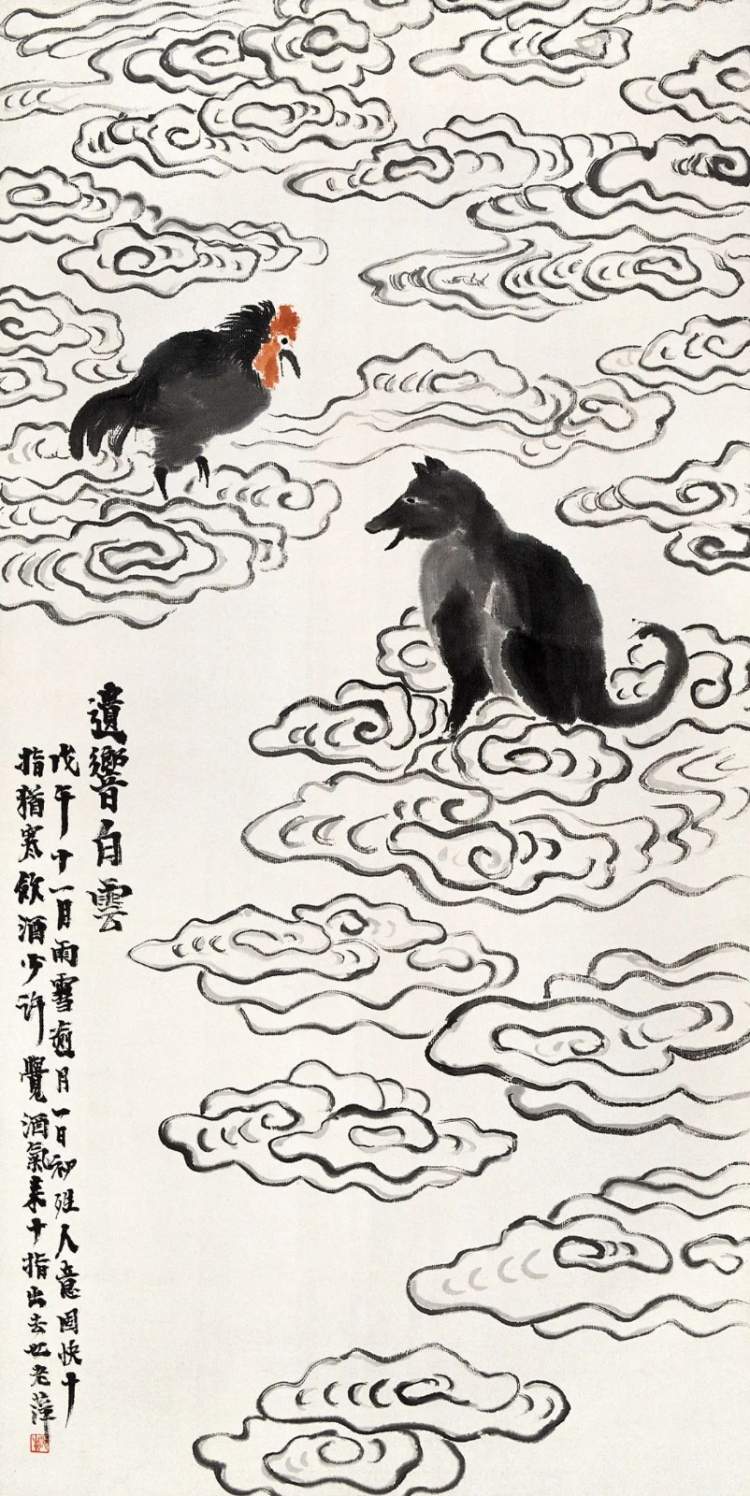 遺響白雲
戊午十一月雨雪逾月一日初晴人意固快十
指猶寒飲酒少許覺酒氣来十指出去也老萍